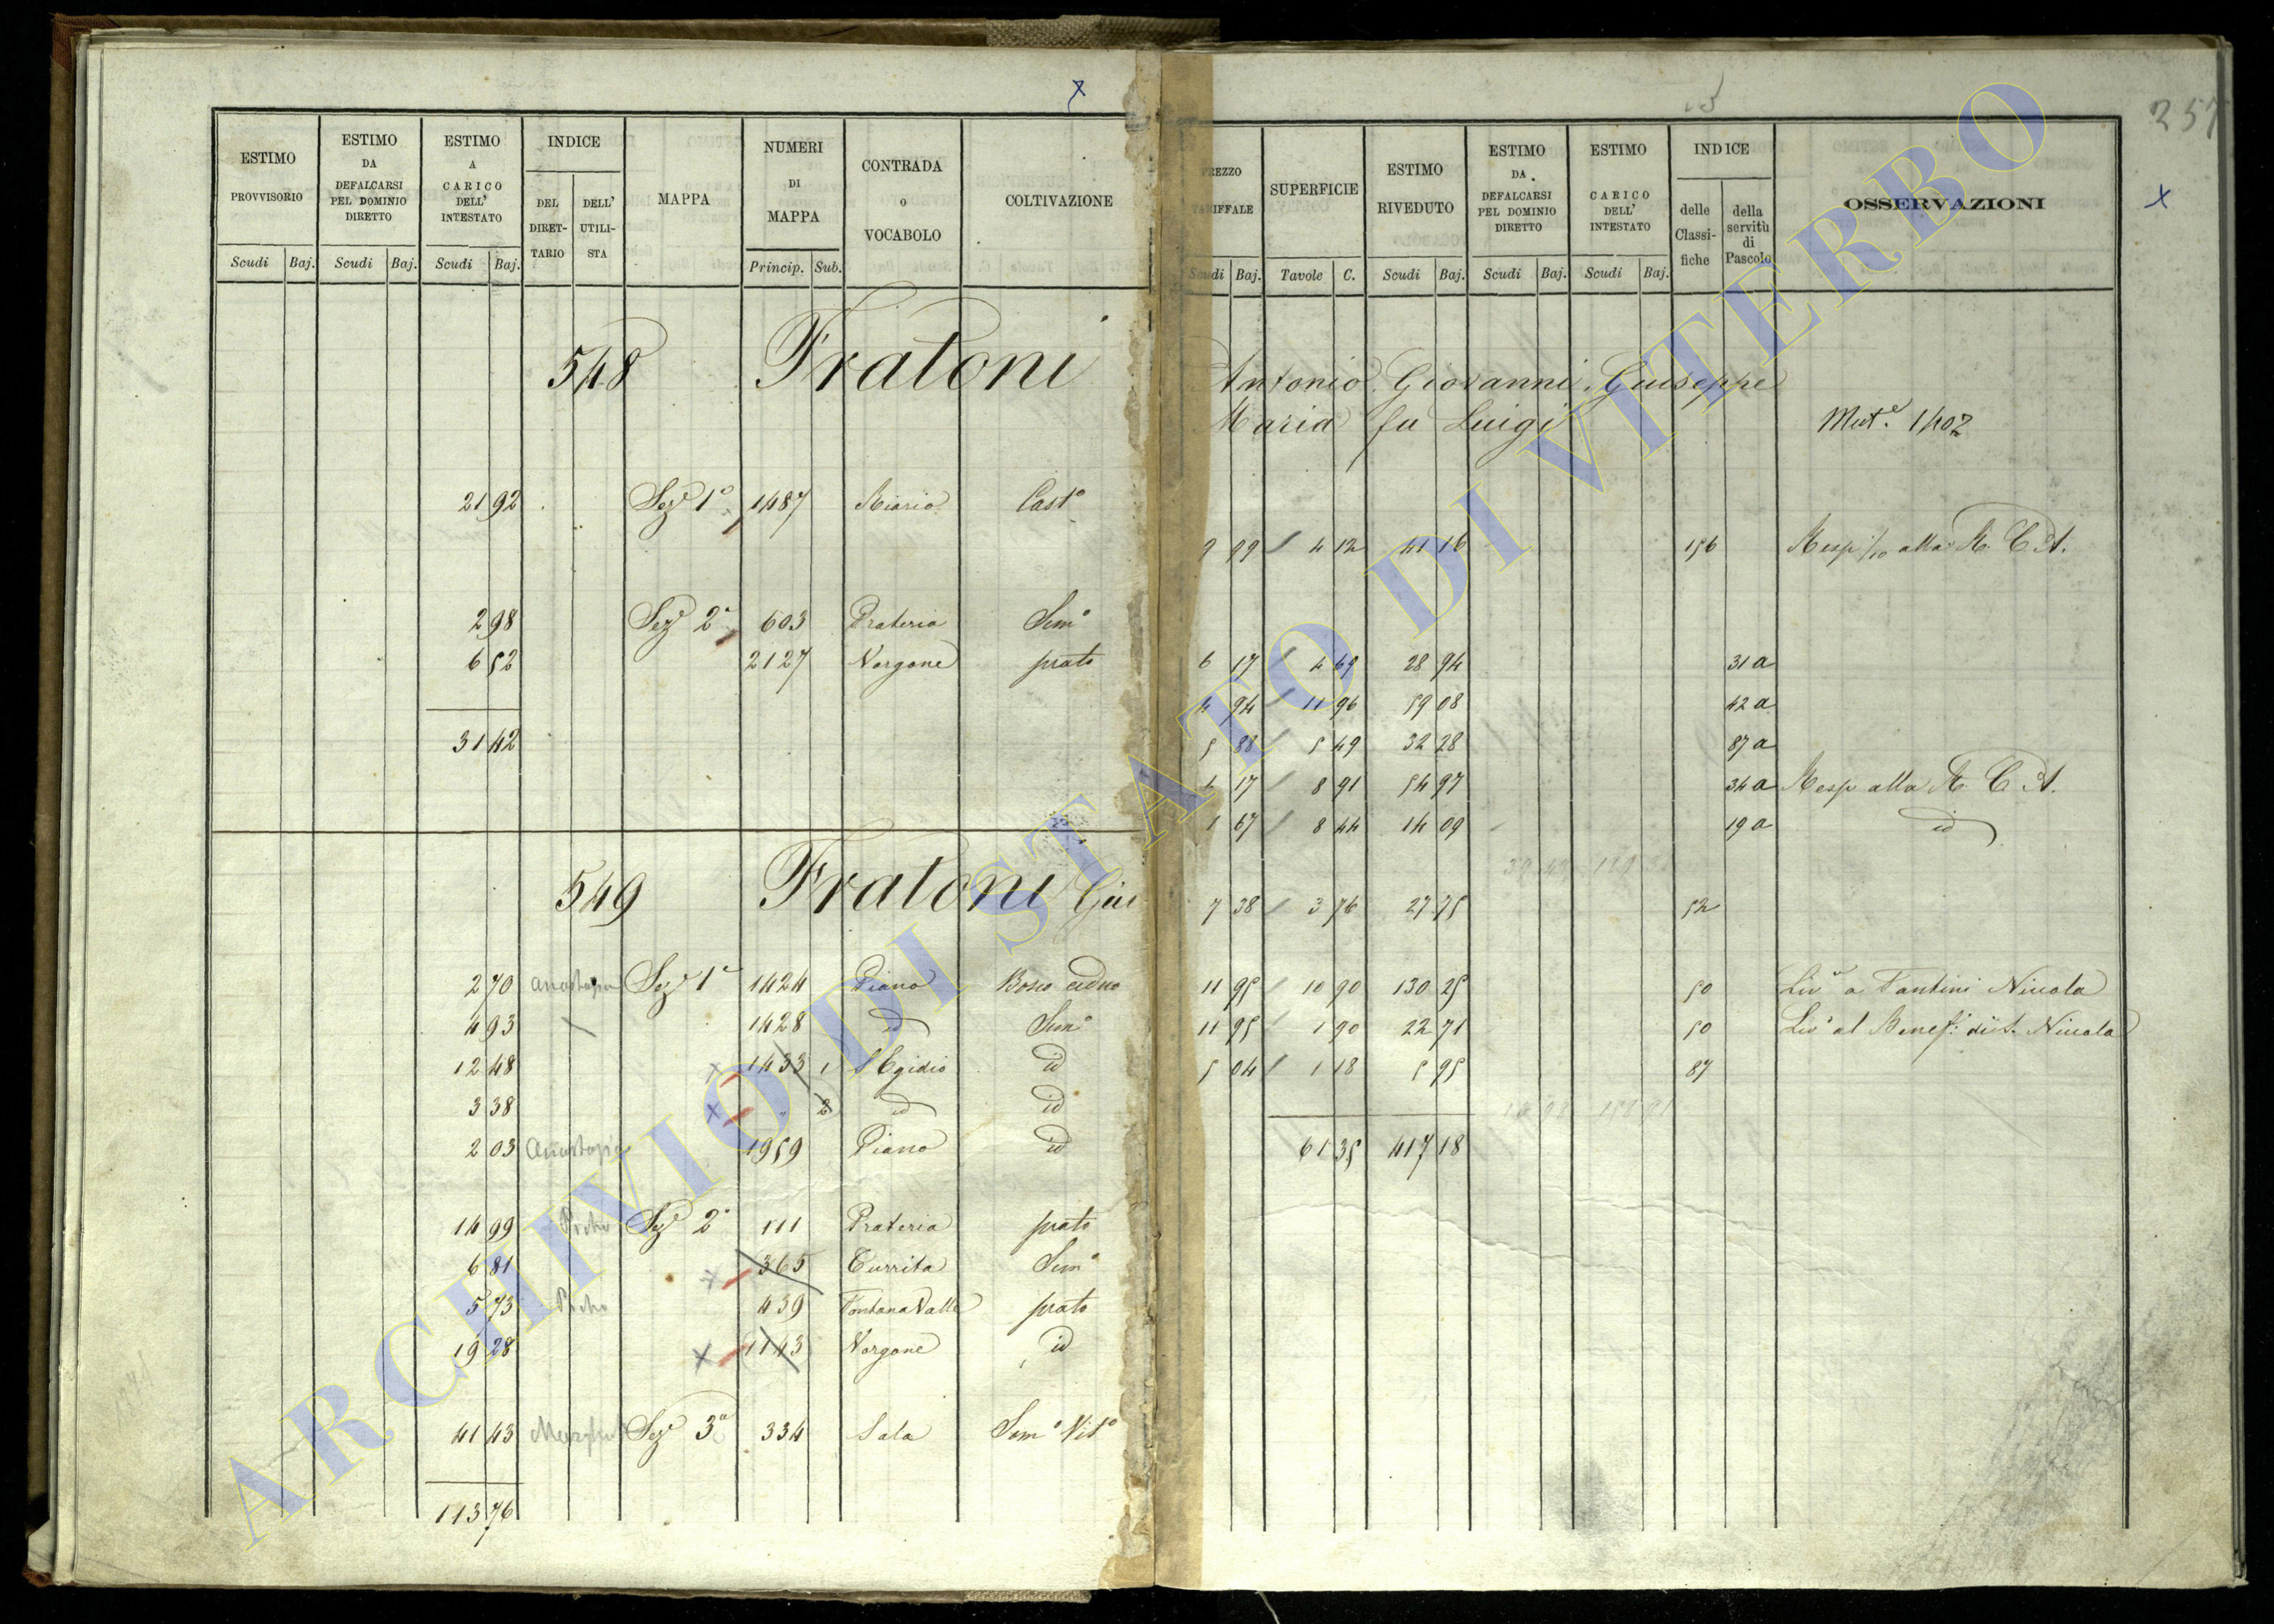 257
ESTIMO PROVVISORIO Scudi Baj.
ESTIMO DA DEFALCARSI PEL DOMINIO DIRETTO Scudi Baj.
ESTIMO A CARICO DELL' INTESTATO Scudi Baj.
INDICE DEL DIRETTARIO DELL' UTILISTA
MAPPA
NUMERI DI MAPPA Princip. Sub.
CONTRADA o VOCABOLO
COLTIVAZIONE
548 Fratoni
21 92 Sez.e 1a 1487 Riario Casto
2 98 Sez.e 2a 603 Prateria Semo
6 52 2127 Norgone prato
31 42
549 Fratoni Giu
2 70 Sez.e 1a 1424 Piano Bosco ceduo
4 93 1428 id Semo
12 48 1433 1 S Egidio id
3 38 " 2 id id
2 03 1959 Piano id
14 99 Sez.e 2a 111 Prateria prato
6 81 365 Turrita Semo
5 73 439 Fontana Valle prato
19 28 1143 Norgone id
41 43 Sez.e 3a 334 Sala Semo Vito
113 76
PREZZO TARIFFALE Scudi Baj.
SUPERFICIE Tavole C.
ESTIMO RIVEDUTO Scudi Baj.
ESTIMO DA DEFALCARSI PEL DOMINIO DIRETTO Scudi Baj.
ESTIMO CARICO DELL' INTESTATO Scudi Baj.
INDICE delle Classifiche della servitù di Pascolo
OSSERVAZIONI
Antonio, Giovanni, Giuseppe
Maria fu Luigi
Mute. 1402
9 99 4 12 41 16 156 Resp 1/10 alla R. C. A.
6 17 4 69 28 94 31 a
4 94 11 96 59 08 42 a
5 88 5 49 32 28 87 a
6 17 8 91 54 97 34 a Resp alla R. C. A.
1 67 8 44 14 09 19 a id
7 38 3 76 27 75 52
11 95 10 90 130 25 50 Livo a Fantini Nicola
11 95 1 90 22 71 50 Livo al Benef. di S. Nicola
5 04 1 18 5 95 87
61 35 417 18
ARCHIVIO DI STATO DI VITERBO